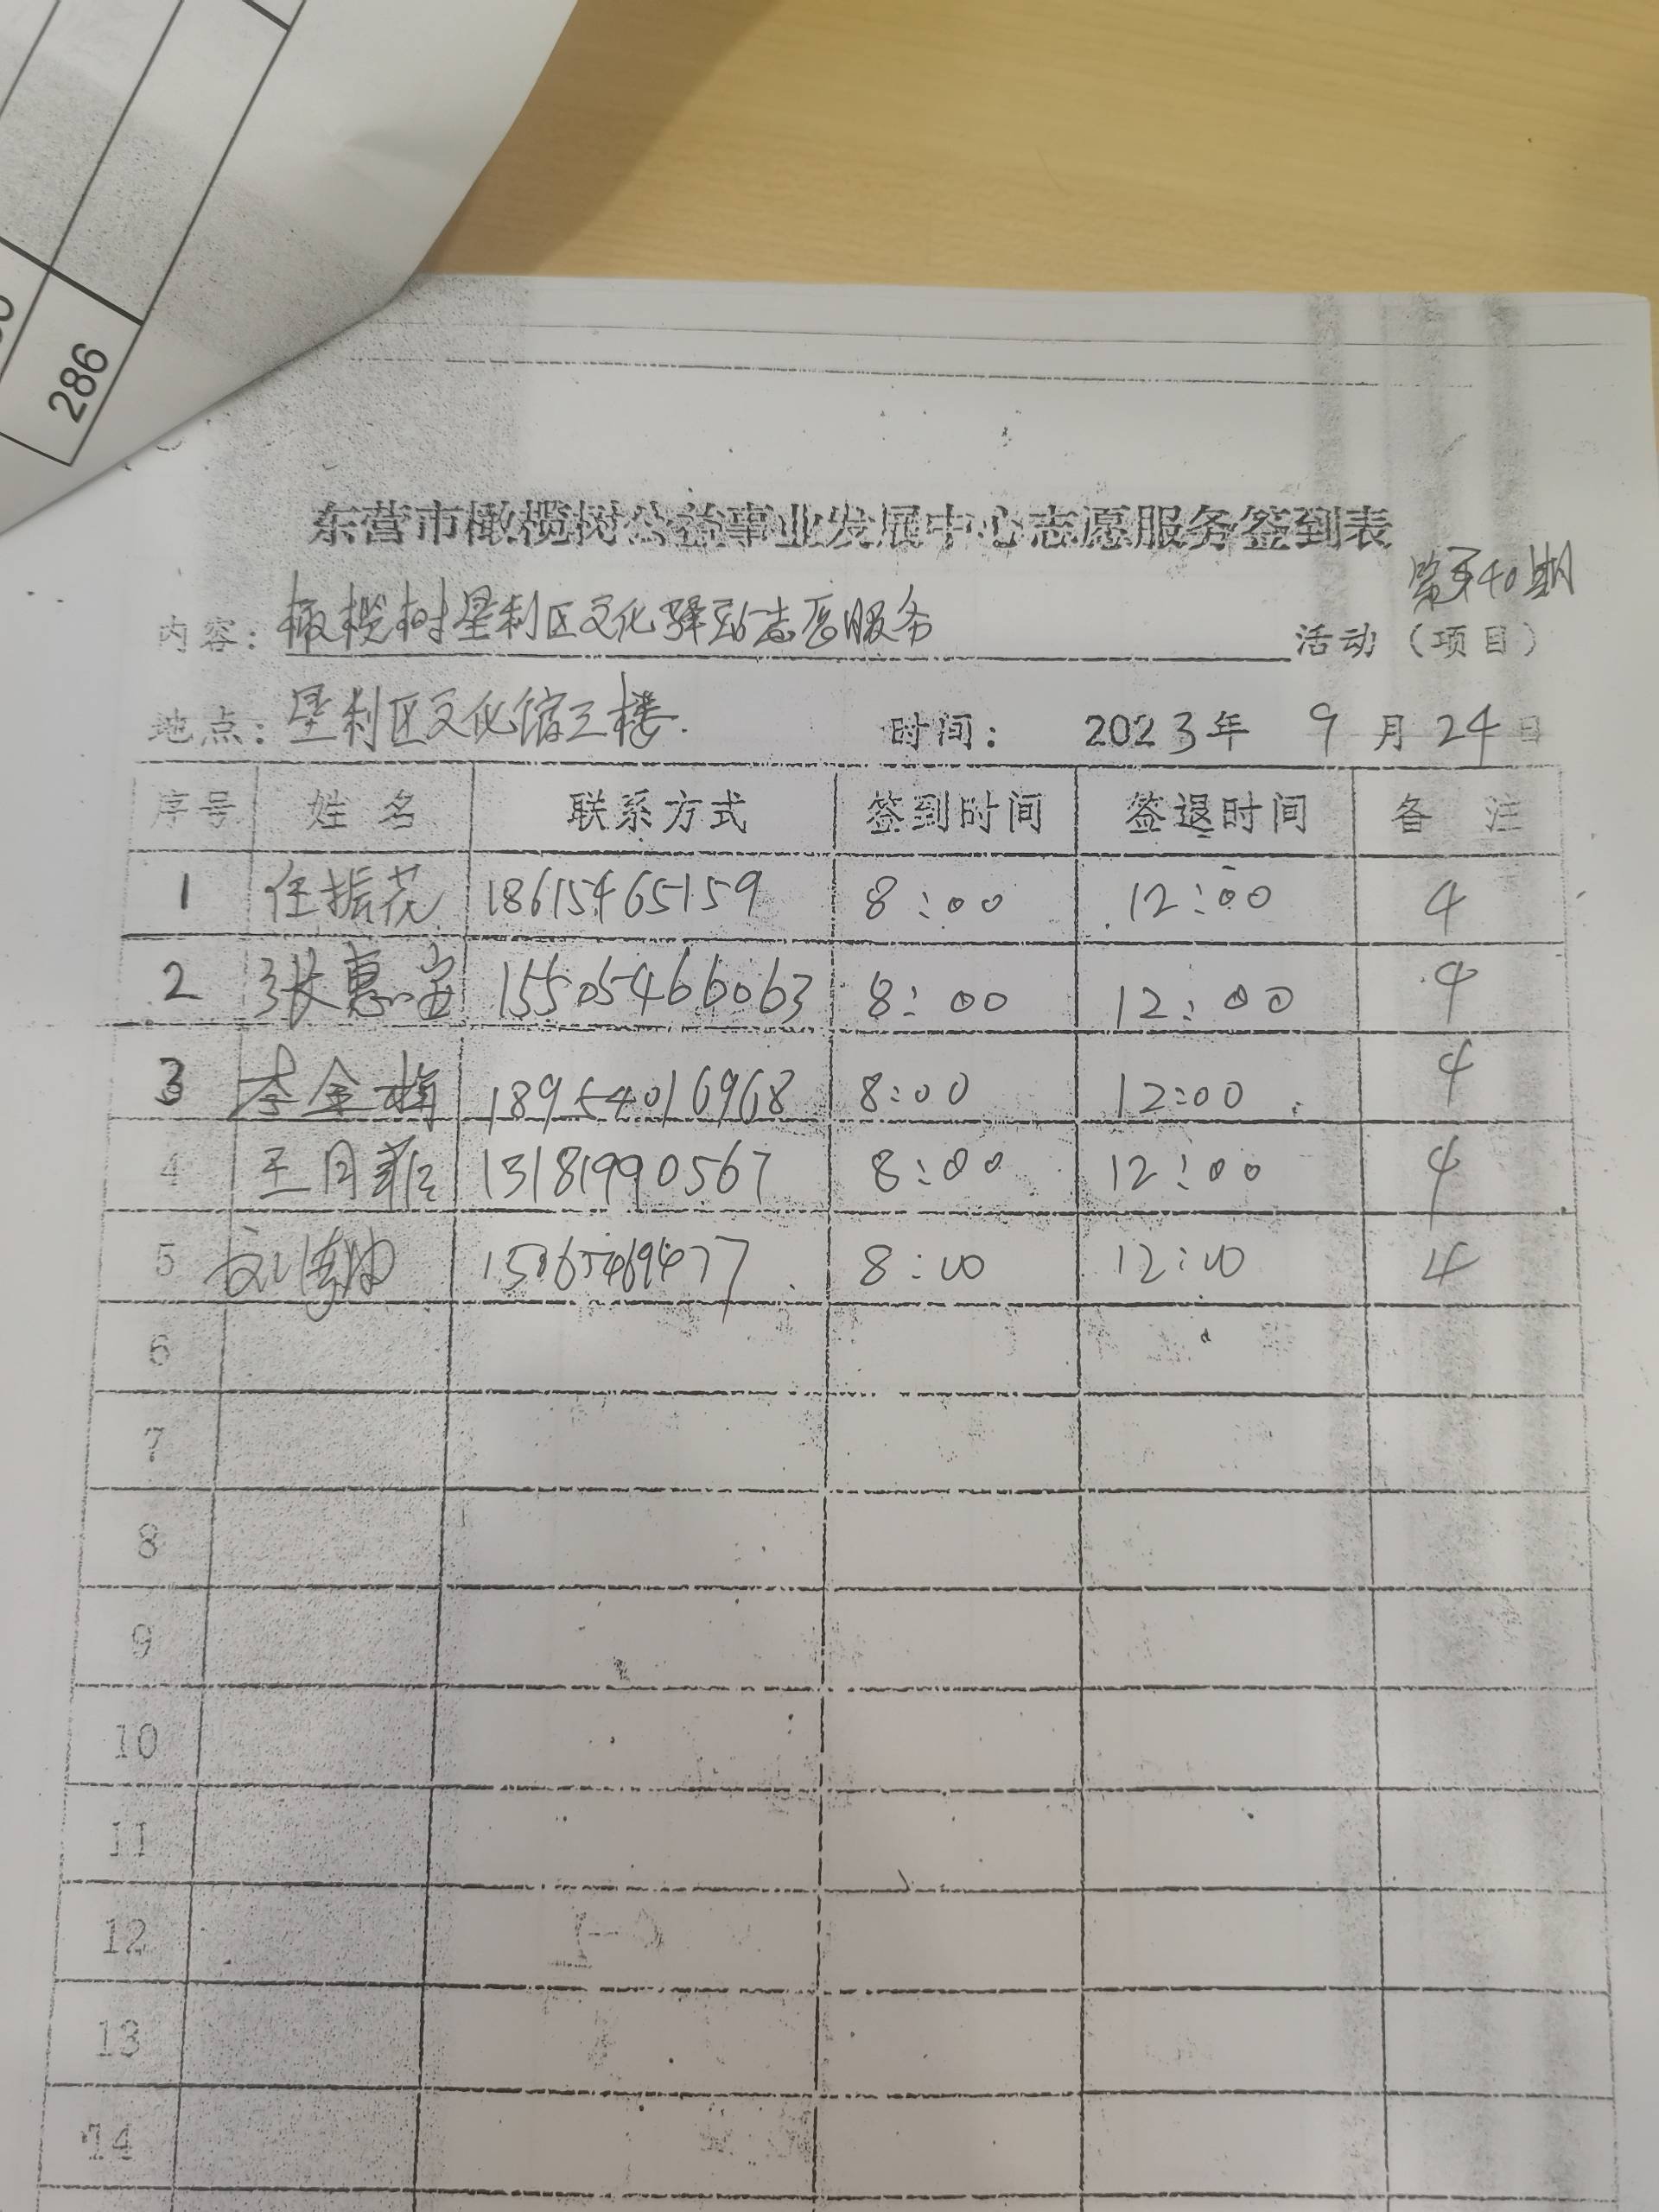 286
东营市橄榄树公益事业发展中心志愿服务签到表
第40期
内容：橄榄树垦利区文化驿站志愿服务 活动（项目）
地点：垦利区文化馆三楼. 时间： 2023年 9月24日
序号 姓名 联系方式 签到时间 签退时间 备注
1 任振花 18615465159 8:00 12:00 4
2 张惠宝 15505466063 8:00 12:00 4
3 李金梅 18954016968 8:00 12:00 4
4 王月 13181990567 8:00 12:00 4
5 8:00 12:00 4
6
7
8
9
10
11
12
13
14